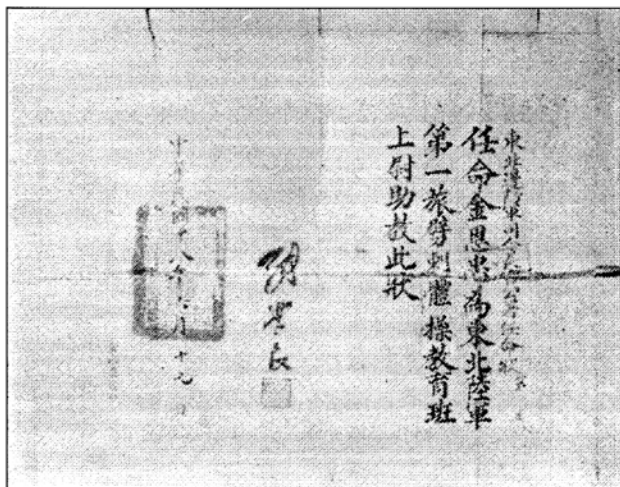 東北邊防軍司令長官公署任命狀
任命金恩忠為東北陸軍
第一旅劈刺體操教育班
上尉助教此狀
張學良
中華民國十八年六月十九日